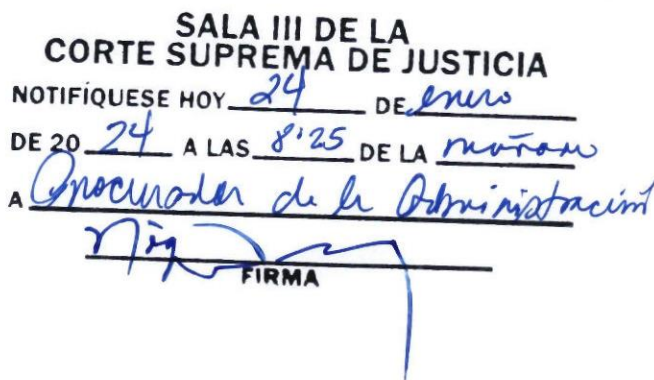 SALA III DE LA
CORTE SUPREMA DE JUSTICIA
NOTIFÍQUESE HOY 24 DE enero
DE 20 24 A LAS 8:25 DE LA mañana
A Procurador de la Administración
FIRMA